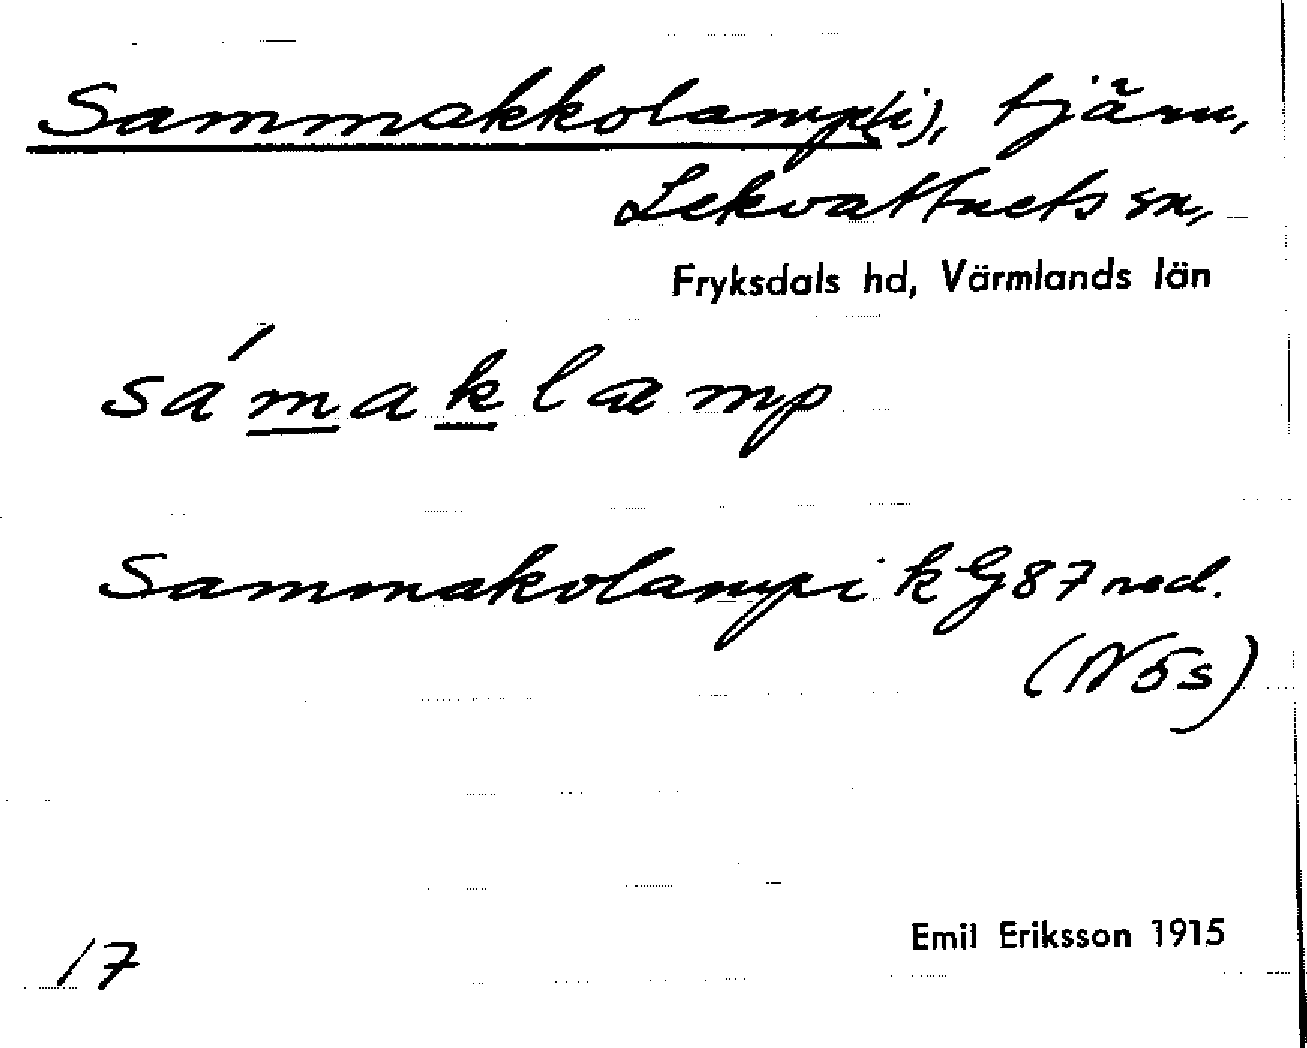 Sammakkolamp(i), tjärn,
Lekvattnets sn,
Fryksdals hd, Värmlands län
sámaklæmp
Sammakolampi k G 87 ned.
(N ö s)
17
Emil Eriksson 1915